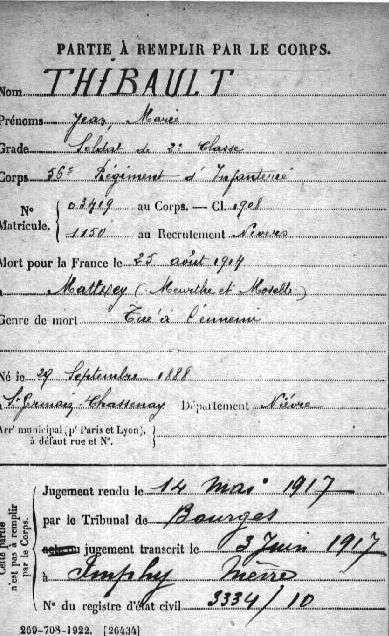 PARTIE À REMPLIR PAR LE CORPS.
Nom THIBAULT
Prénoms Jean, Marie
Grade Soldat de 2e Classe
Corps 56e Régiment d'Infanterie
No Matricule. { 03419 au Corps. — Cl. 1908
1150 au Recrutement Nevers
Mort pour la France le 25 août 1914
à (Meurthe et Moselle)
Genre de mort Tué à l'ennemi
Né le 29 Septembre 1888
à St Germain-Chassenay Département Nièvre
Arr' municipal (p' Paris et Lyon), à défaut rue et No. }
Cette partie n'est pas à remplir par le Corps.
Jugement rendu le 14 Mai 1917
par le Tribunal de Bourges
jugement transcrit le 3 Juin 1917
à Imphy Nièvre
No du registre d'état civil 3334/10
269-708-1922. [26434]